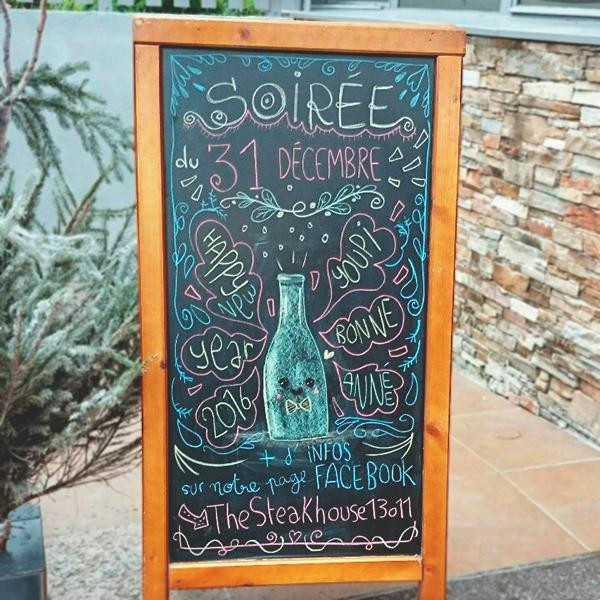 SOIRÉE
du 31 DÉCEMBRE
HAPPY
New
year
2016
YOUPI
BONNE
ANNE
+ d'INFOS
sur notre page FACEBOOK
TheSteakhouse13011